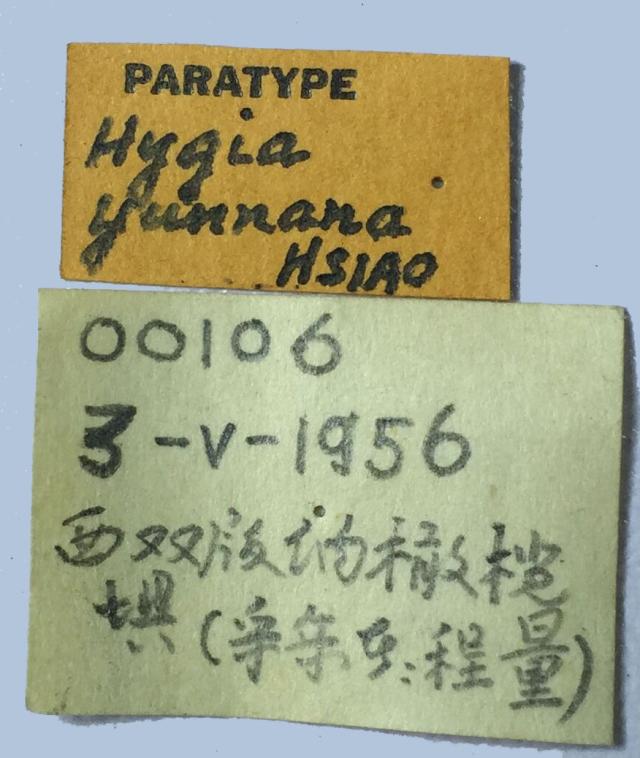 PARATYPE
Hygia
yunnana
HSIAO
00106
3-V-1956
西双版纳橄榄
坝(采集者:程量)